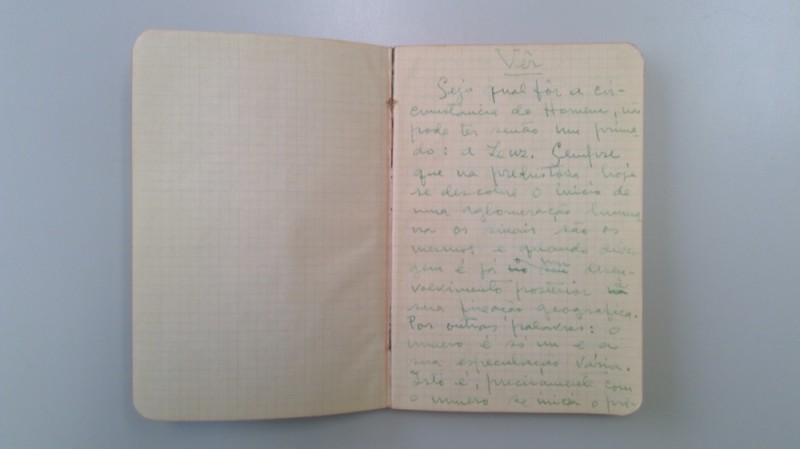 Vêr
Seja qual fôr a cir-
cunstancia do Homem, não
pode ter senão um prime
do: a Luz. Sempre
que na prehistoria hoje
se descobre o inicio de
uma aglomeração huma
na os sinais são os
mesmos e quando diver
gem é já no seu desen-
volvimento posterior na
sua fixação geografica.
Por outras palavras: o
numero é só um e a
sua especulação vária.
Isto é, precisamente com
o numero se inicia o pre-